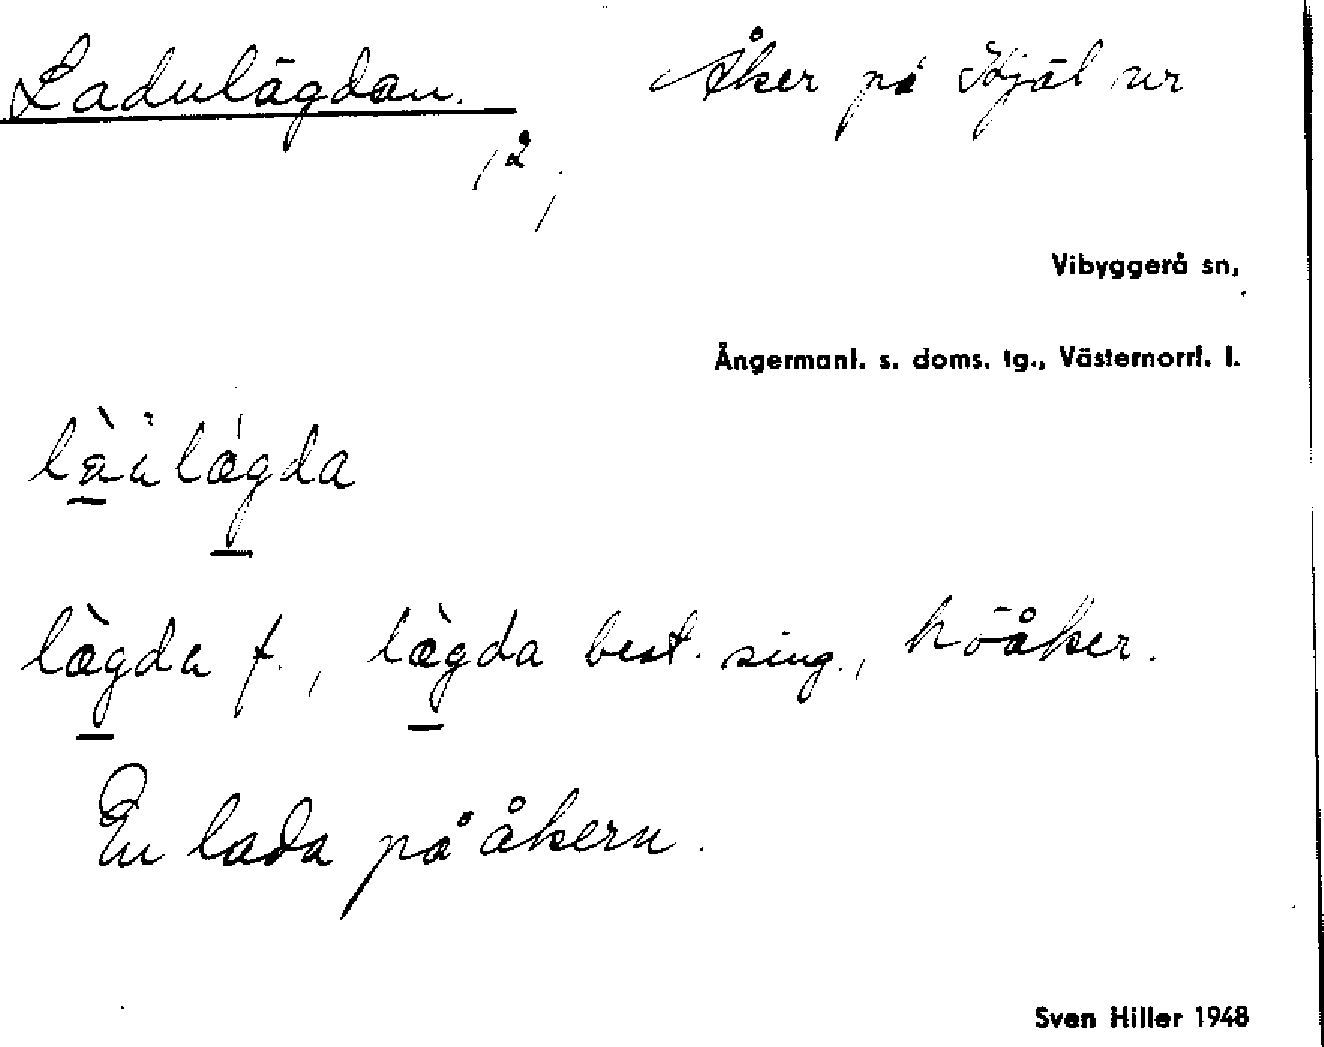 Ladulägdan. Åker på Kjäl nr
/2
/
Vibyggerå sn,
Ångermanl. s. doms. tg., Västernorrl. l.
làùlǽgda
læ̀gda f., læ̀gda best. sing., höåker.
En lada på åkern.
Sven Hiller 1948